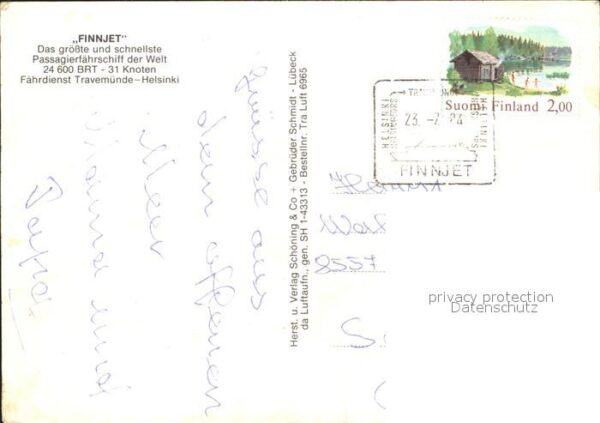 „FINNJET"
Das größte und schnellste
Passagierfährschiff der Welt
24 600 BRT - 31 Knoten
Fährdienst Travemünde–Helsinki
Grüsse aus
dem offenen
Meer
Mama und
Papa
Herst. u. Verlag Schöning & Co + Gebrüder Schmidt - Lübeck
da Luftaufn., gen. SH 1-43313 - Bestellnr. Tra Luft 6965
Suomi Finland 2,00
HELSINKI
FINNJET
8557
privacy protection
Datenschutz